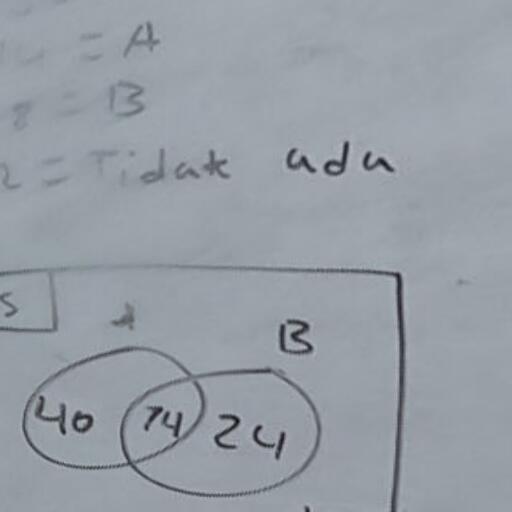 = A
8 = B
2 = Tidak ada
S
A
B
40 74 24